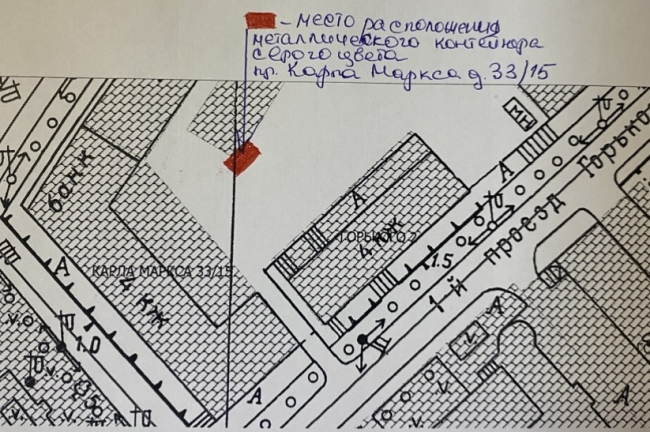 - место расположения
металлического контейнера
серого цвета
пр. Карла Маркса д. 33/15
МН
банк
А
А
Горько
ГОРЬКОГО 2
4 КЖ
1.5
1-й проезд
А
КАРЛА МАРКСА 33/15
4 КЖ
1.0
А
А
А